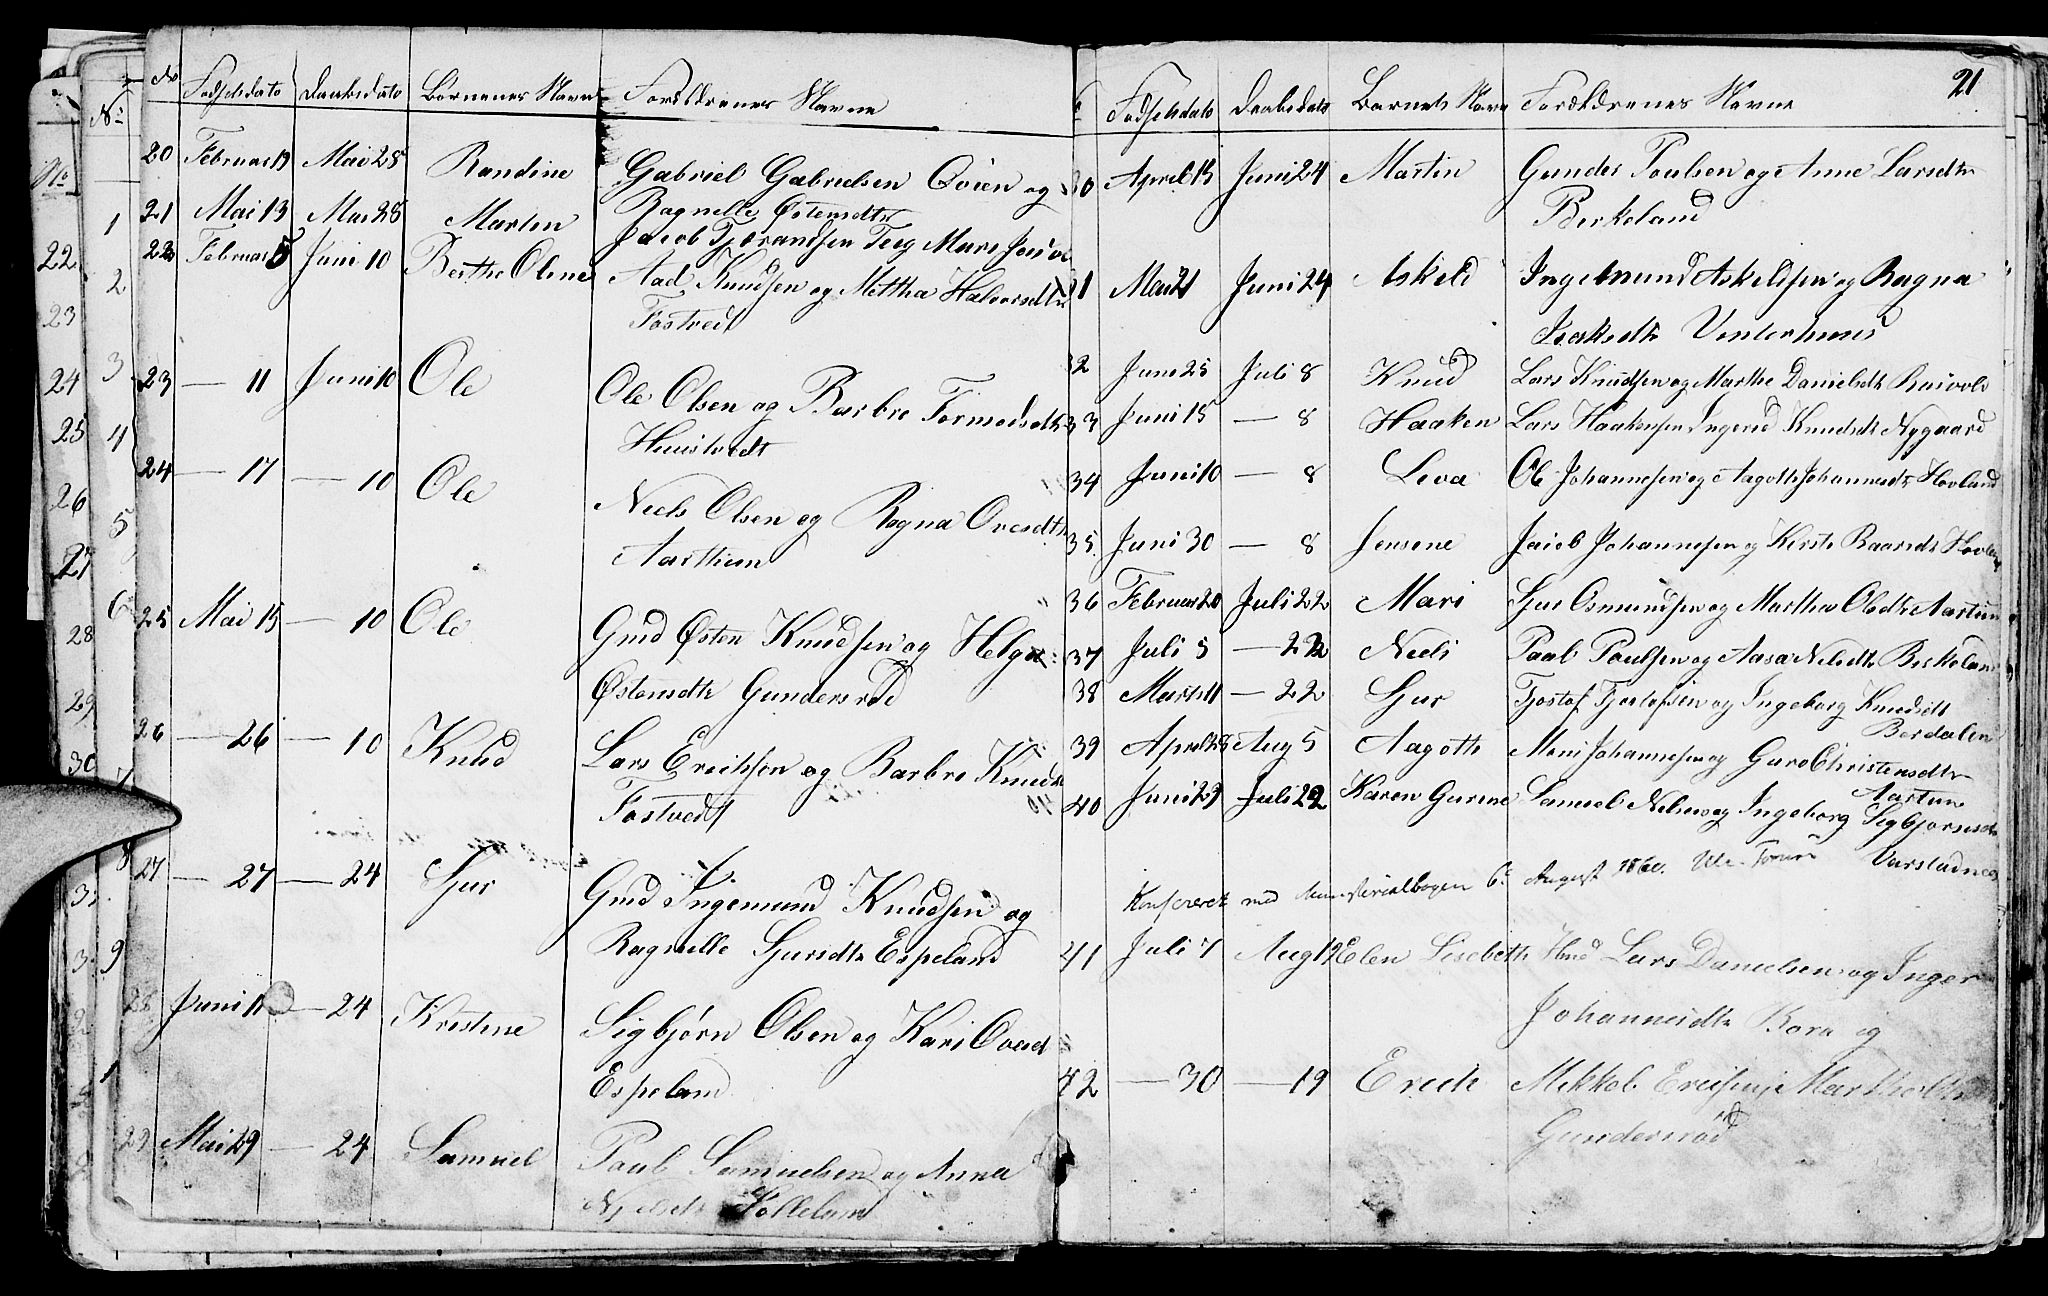 No Fødselsdato Daabsdato Børnenes Navn Foreldrenes Navne
20 Februar 19 Mai 28 Randine Gabriel Gabrielsen Qvien og
Ragnelle Østensdtr
21 Mai 13 Mai 28 Marten Jacob Tjerandsen Teig Mari
22 Februar 5 Juni 10 Berthe Oline Aad Knudsen og Mettha Halvorsdtr
Fostvedt
23 — 11 Juni 10 Ole Ole Olsen og Barbro Tormodsdtr
Hunistvedt
24 — 17 — 10 Ole Neels Olsen og Ragna Ovesdtr
Aarthun
25 Mai 15 — 10 Ole Gmd Østen Knudsen og Helga
Østensdtr Gundersrød
26 — 26 — 10 Knud Lars Ereiksen og Barbro Knudsd
Fostvedt
27 — 27 — 24 Sjur Gmd Ingemund Knudsen og
Ragnelle Sjursdtr Espeland
28 Juni 11 — 24 Kristine Sigbjørn Olsen og Kari Ovesd
Espeland
29 Mai 29 — 24 Samuel Paul Samuelsen og Anna
Njelsdtr
21
Fødselsdato Daabsdato Barnets Navn Foreldrenes Navne
30 April 15 Juni 24 Martin Gunder Poulsen og Anne Larsdtr
Berkeland
31 Mai 21 Juni 24 Askeld Ingebmund Askeldsen og Ragna
Isaksdtr Vinterhuus
32 Juni 25 Juli 8 Knud Lars Knudsen og Marthe Danielsdtr
33 Juni 15 — 8 Haaken Lars Haakensen Ingerid Knudsdtr Nygaard
34 Juni 10 — 8 Leva Ole Johannesen og Aagothe Johannesdtr Hovland
35 Juni 30 — 8 Jensene Jacob Johannesen og Kirste Baardsdtr
36 Februar 20 Juli 22 Mari Sjur Osmundsen og Martha Olsdtr Aartun
37 Juli 5 — 22 Niels Paal Poulsen og Aasa Nilsdtr Berkeland
38 Marts 11 — 22 Sjur Tjostof Tjostofsen og Ingeborg Knudsdt
Berdalen
39 April 23 Aug 5 Aagoth Mons Johannesen og Guro Christensdtr
Aartun
40 Juni 29 Juli 22 Karen Gurine Samuel Nilsen og Ingeborg Sigbjørnsdtr
Varstadnes
Konfereret med Ministerialbogen 6te August 1860.
41 Juli 7 Aug 19 Elen Lisebeth Hmd Lars Danielsen og Inger
Johannesdtr
42 — 30 — 19 Mikkel
Gundersrød
22
23
24
25
26
27
28
29
30
No
1
2
3
4
5
6
7
8
9